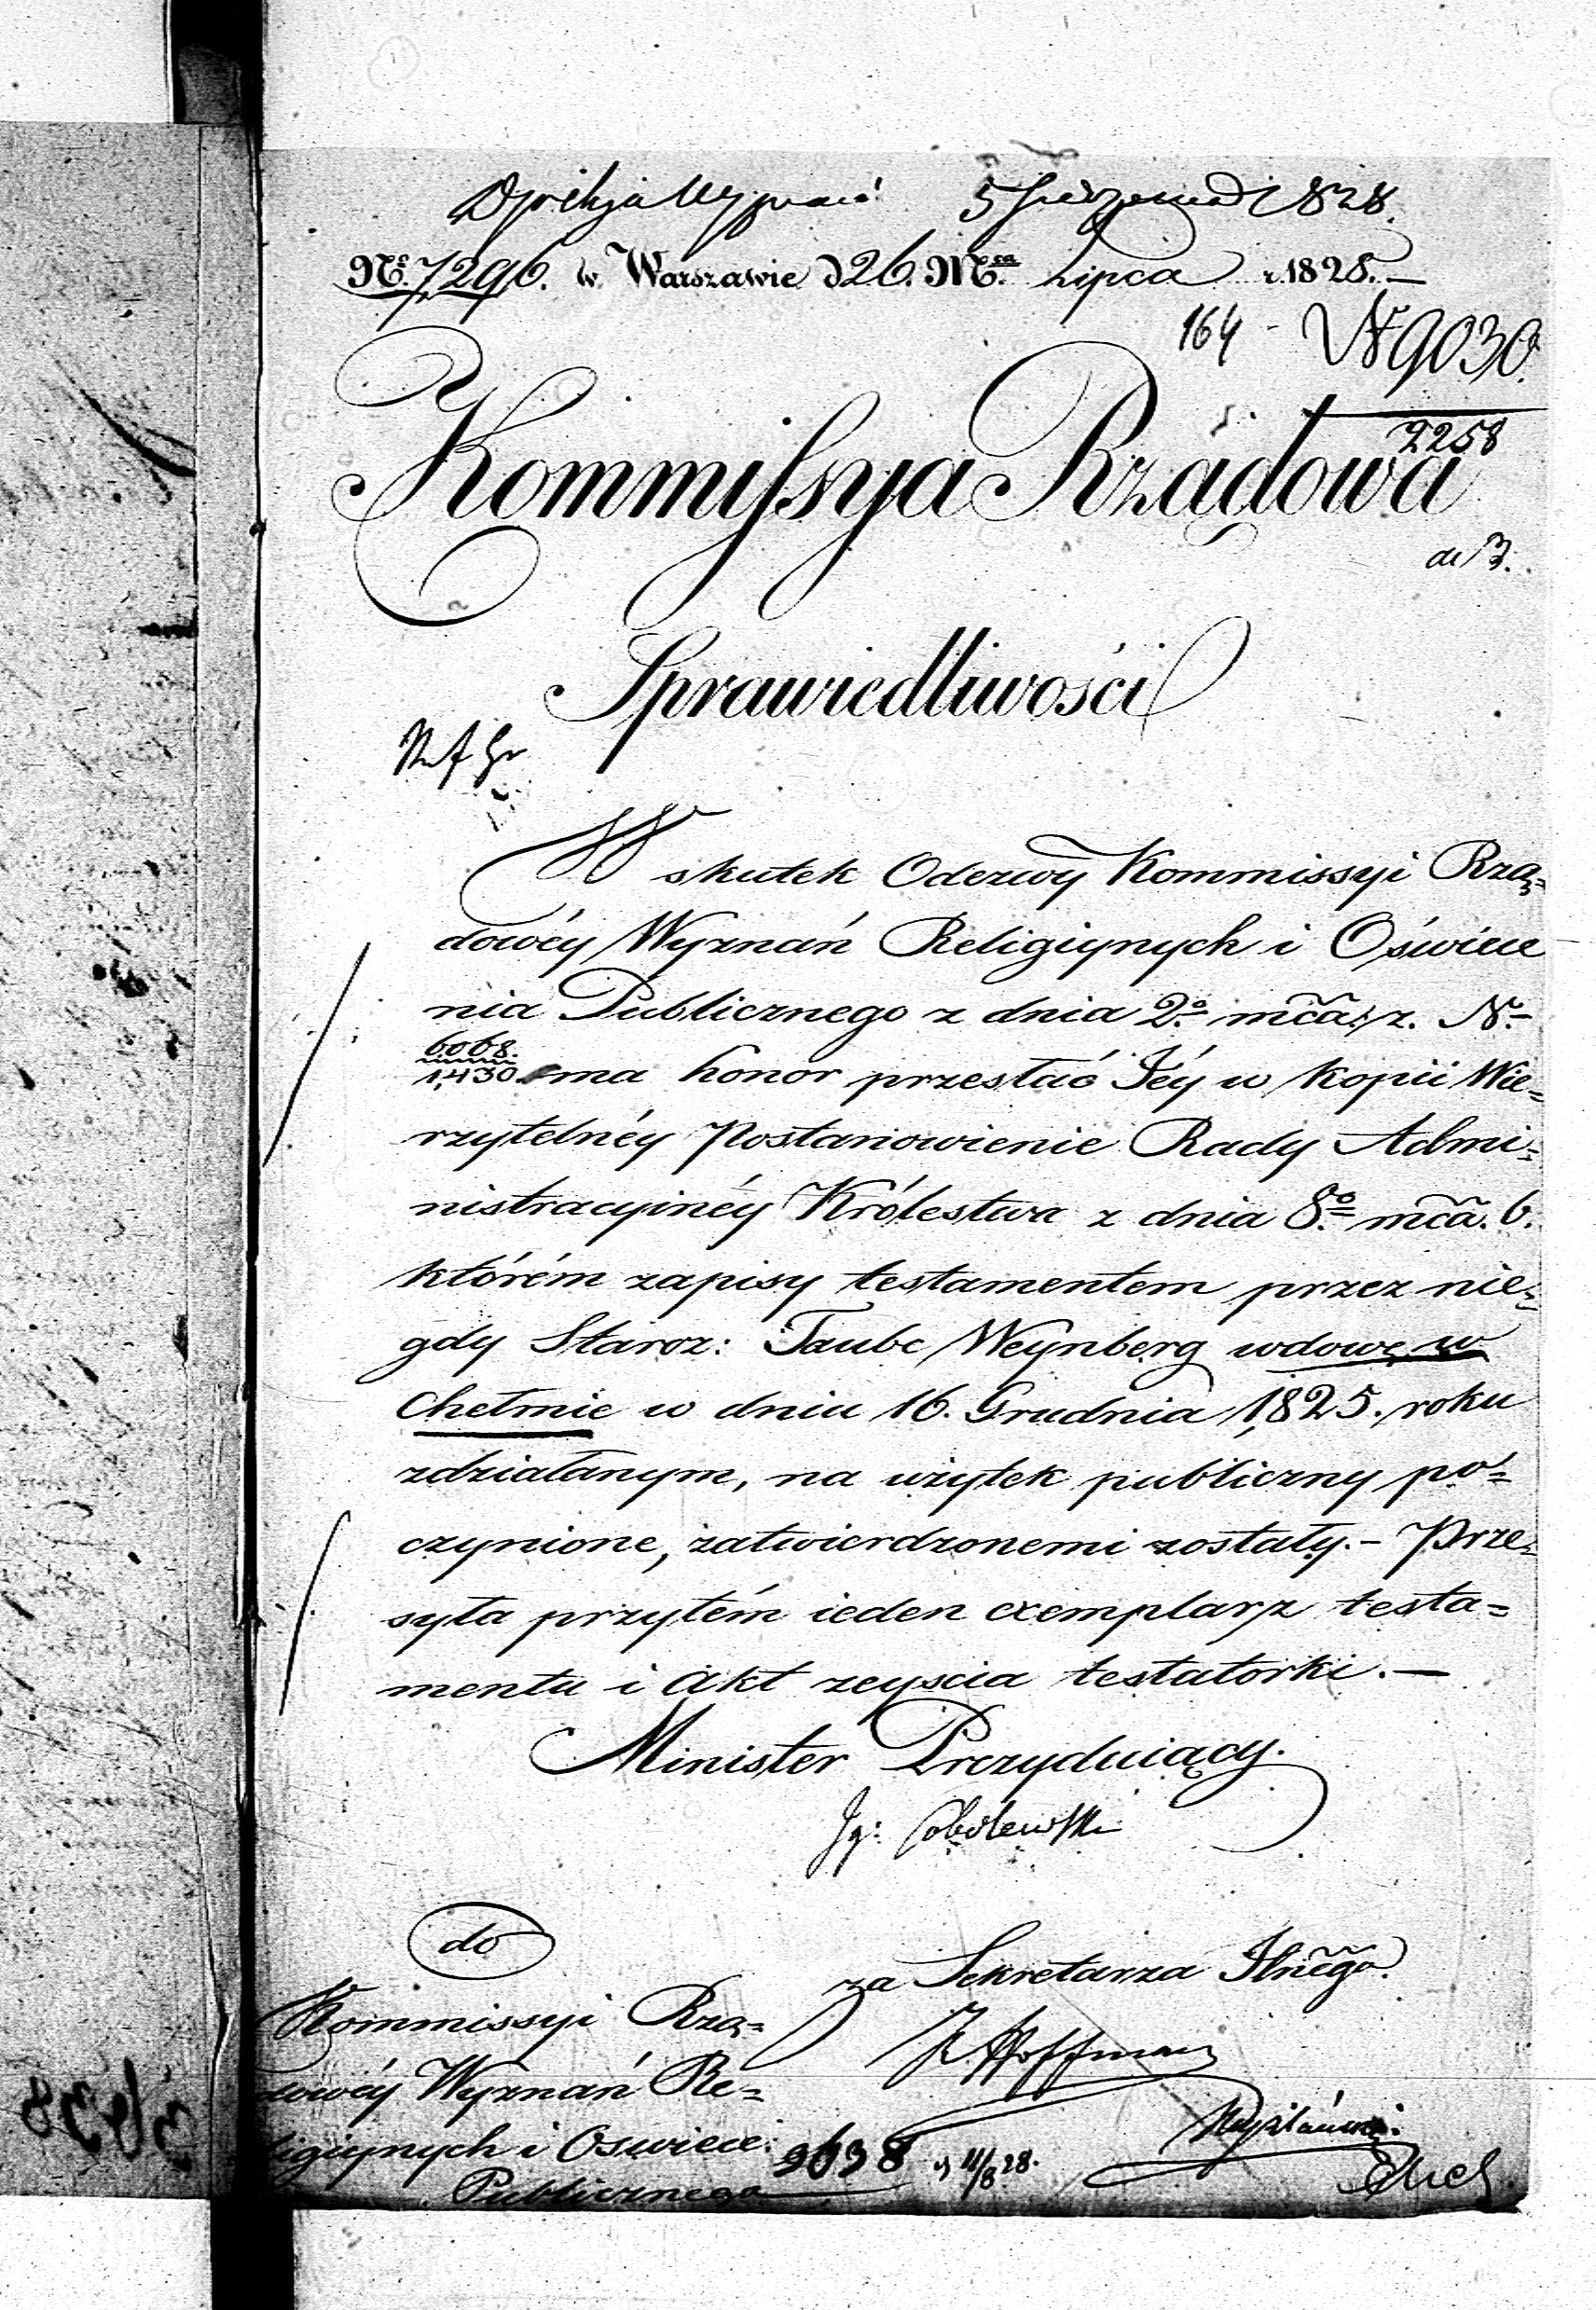 Dyrekcja Wyznań 5 Sierpnia 1828.
No. 7,296. w Warszawie d 26. Mca Lipca r. 1828. —
164 - N 9030.
2258
Kommissyia Rządowa
Sprawiedliwości
W skutek Odezwy Kommissyi Rzą=
dowéy Wyznań Religiynych i Oświece
nia Publicznego z dnia 2o. mca. r. z. N.
6068.
1,430. ma honor przesłać Jéy w kopii Wie=
rzytelnéy Postanowienie Rady Admi=
nistracyinéy Królestwa z dnia 8o. mca. b.
którém zapisy testamentem przez nie=
gdy Staroz: Taube Weynberg wdowę w
Chełmie w dniu 16. Grudnia 1,825. roku
zdziałanym, na użytek publiczny po=
czynione, zatwierdzonemi zostały. - Prze=
syła przytém ieden exemplarz testa=
mentu i Akt zeyścia testatorki. —
Minister Prezyduiący.
Ig: Sobolewski
do
za Sekretarza Jlnego.
Kommissyi Rzą=
J. Hoffman
dowéy Wyznań Re=
ligiynych i Oswiece:
3638 d 11/8 28.
Publicznego